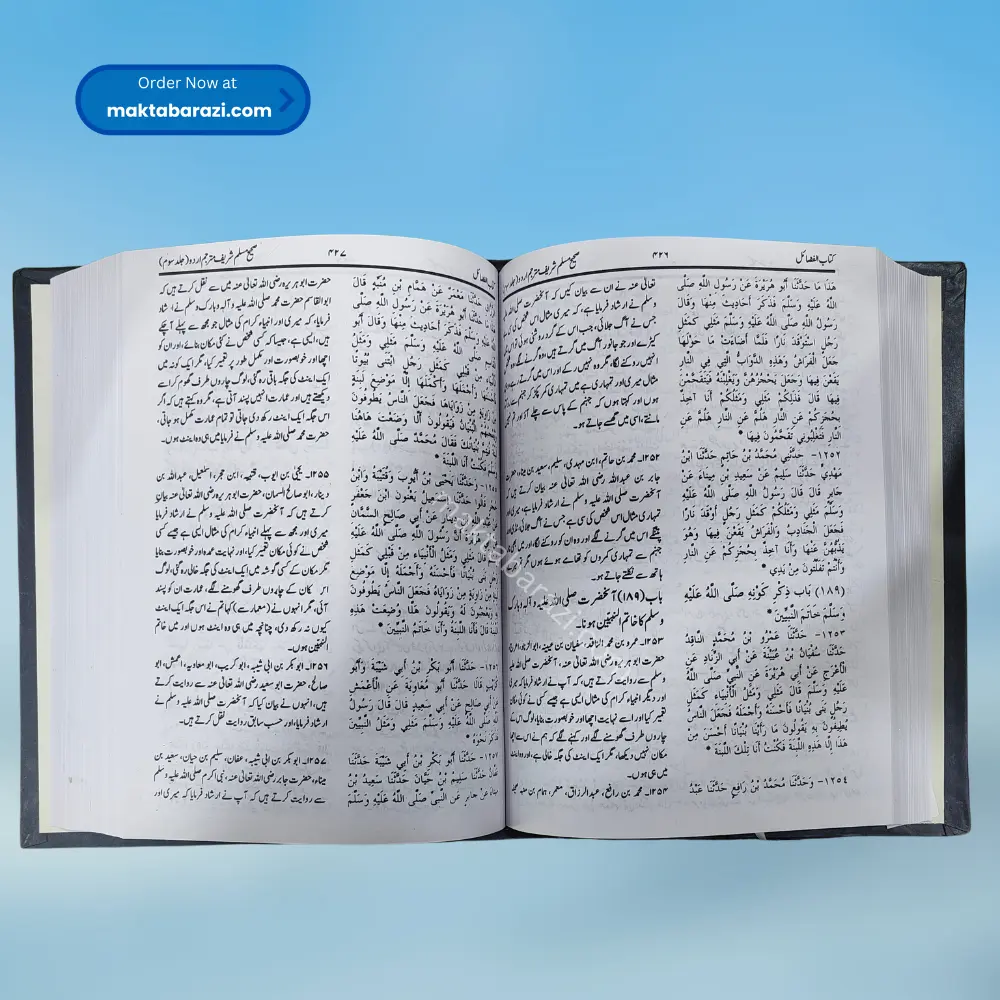 Order Now at
maktabarazi.com
کتاب الفضائل
۴۲۶
صحیح مسلم شریف مترجم اردو (جلد
هٰذَا مَا حَدَّثَنَا أَبُو هُرَيْرَةَ عَنْ رَسُولِ اللَّهِ صَلَّى
اللَّهُ عَلَيْهِ وَسَلَّمَ فَذَكَرَ أَحَادِيثَ مِنْهَا وَقَالَ
رَسُولُ اللَّهِ صَلَّى اللَّهُ عَلَيْهِ وَسَلَّمَ مَثَلِي كَمَثَلِ
رَجُلٍ اسْتَوْقَدَ نَارًا فَلَمَّا أَضَاءَتْ مَا حَوْلَهَا
جَعَلَ الْفَرَاشُ وَهَذِهِ الدَّوَابُّ الَّتِي فِي النَّارِ
يَقَعْنَ فِيهَا وَجَعَلَ يَحْجُزُهُنَّ وَيَغْلِبْنَهُ فَيَتَقَحَّمْنَ
فِيهَا قَالَ فَذَلِكُمْ مَثَلِي وَمَثَلُكُمْ أَنَا آخِذٌ
بِحُجَزِكُمْ عَنِ النَّارِ هَلُمَّ عَنِ النَّارِ هَلُمَّ عَنِ
النَّارِ فَتَغْلِبُونِي تَقَحَّمُونَ فِيهَا *
۱۲۵۲- حَدَّثَنِي مُحَمَّدُ بْنُ حَاتِمٍ حَدَّثَنَا ابْنُ
مَهْدِيٍّ حَدَّثَنَا سَلِيمٌ عَنْ سَعِيدِ بْنِ مِينَاءَ عَنْ
جَابِرٍ قَالَ قَالَ رَسُولُ اللَّهِ صَلَّى اللَّهُ عَلَيْهِ
وَسَلَّمَ مَثَلِي وَمَثَلُكُمْ كَمَثَلِ رَجُلٍ أَوْقَدَ نَارًا
فَجَعَلَ الْجَنَادِبُ وَالْفَرَاشُ يَقَعْنَ فِيهَا وَهُوَ
يَذُبُّهُنَّ عَنْهَا وَأَنَا آخِذٌ بِحُجَزِكُمْ عَنِ النَّارِ
وَأَنْتُمْ تَفَلَّتُونَ مِنْ يَدِي *
(۱۸۹) بَاب ذِكْرِ كَوْنِهِ صَلَّى اللَّهُ عَلَيْهِ
وَسَلَّمَ خَاتَمَ النَّبِيِّينَ *
۱۲۵۳- حَدَّثَنَا عَمْرُو بْنُ مُحَمَّدٍ النَّاقِدُ
حَدَّثَنَا سُفْيَانُ بْنُ عُيَيْنَةَ عَنْ أَبِي الزِّنَادِ عَنِ
الْأَعْرَجِ عَنْ أَبِي هُرَيْرَةَ عَنِ النَّبِيِّ صَلَّى اللَّهُ
عَلَيْهِ وَسَلَّمَ قَالَ مَثَلِي وَمَثَلُ الْأَنْبِيَاءِ كَمَثَلِ
رَجُلٍ بَنَى بُنْيَانًا فَأَحْسَنَهُ وَأَجْمَلَهُ فَجَعَلَ النَّاسُ
يُطِيفُونَ بِهِ يَقُولُونَ مَا رَأَيْنَا بُنْيَانًا أَحْسَنَ مِنْ
هَذَا إِلَّا هَذِهِ اللَّبِنَةَ فَكُنْتُ أَنَا تِلْكَ اللَّبِنَةَ *
۱۲۵۴- وَحَدَّثَنَا مُحَمَّدُ بْنُ رَافِعٍ حَدَّثَنَا عَبْدُ
تعالیٰ عنہ نے ان سے بیان کیں کہ آنحضرت صلی
وسلم نے ارشاد فرمایا ہے، میری مثال اس شخص کی
جس نے آگ جلائی، جب اس کے گرد روشنی ہوئی تو
کیڑے اور جو جانور آگ میں گرتے ہیں وہ گرنے لگے
انہیں روکنے لگا، مگر وہ نہیں رکے اور اس میں گرنے
مثال میری اور تمہاری ہے میں تمہاری کمر پکڑ کر جہنم سے
ہوں اور کہتا ہوں کہ جہنم کے پاس سے چلے آؤ اور تم نہیں
مانتے، اسی میں گھسے جاتے ہو۔
۱۲۵۲۔ محمد بن حاتم، ابن مہدی، سلیم، سعید بن میناء، حضرت
جابر بن عبداللہ رضی اللہ تعالیٰ عنہ بیان کرتے ہیں کہ
آنحضرت صلی اللہ علیہ وسلم نے ارشاد فرمایا ہے، میری
تمہاری مثال اس شخص کی سی ہے جس نے آگ جلائی،
پتنگے اس میں گرنے لگے اور وہ ان کو روکنے لگا، اور میں
جہنم سے تمہاری کمروں کو تھامے ہوئے ہوں مگر تم
ہاتھ سے نکلتے جاتے ہو۔
باب (۱۸۹) آنحضرت صلی اللہ علیہ وآلہ وبارک
وسلم کا خاتم النبیین ہونا۔
۱۲۵۳۔ عمرو بن محمد الناقد، سفیان بن عیینہ، ابوالزناد، اعرج،
حضرت ابوہریرہ رضی اللہ تعالیٰ عنہ، آنحضرت صلی اللہ علیہ
وسلم سے روایت کرتے ہیں، کہ آپ نے ارشاد فرمایا کہ میری
اور دیگر انبیاء کرام کی مثال، ایسی ہے جیسے کسی نے کوئی مکان
تعمیر کیا اور اسے نہایت اچھا اور خوبصورت بنایا، لوگ اس کے
چاروں طرف گھومنے لگے اور کہنے لگے کہ ہم نے اس سے اچھا
مکان نہیں دیکھا، مگر ایک اینٹ کی جگہ خالی ہے، اور وہ اینٹ
میں ہی ہوں۔
۱۲۵۴۔ محمد بن رافع، عبدالرزاق، معمر، ہمام بن منبہ
۴۲۷
صحیح مسلم شریف مترجم اردو (جلد سوم)
حَدَّثَنَا مَعْمَرٌ عَنْ هَمَّامِ بْنِ مُنَبِّهٍ قَالَ
حَدَّثَنَا أَبُو هُرَيْرَةَ عَنْ رَسُولِ اللَّهِ صَلَّى
عَلَيْهِ وَسَلَّمَ فَذَكَرَ أَحَادِيثَ مِنْهَا وَقَالَ أَبُو
صَلَّى اللَّهُ عَلَيْهِ وَسَلَّمَ مَثَلِي وَمَثَلُ
مِنْ قَبْلِي كَمَثَلِ رَجُلٍ ابْتَنَى بُيُوتًا
وَأَجْمَلَهَا وَأَكْمَلَهَا إِلَّا مَوْضِعَ لَبِنَةٍ
زَاوِيَةٍ مِنْ زَوَايَاهَا فَجَعَلَ النَّاسُ يَطُوفُونَ
الْبُنْيَانُ فَيَقُولُونَ أَلَّا وَضَعْتَ هَاهُنَا
بُنْيَانُكَ فَقَالَ مُحَمَّدٌ صَلَّى اللَّهُ عَلَيْهِ
وَسَلَّمَ فَكُنْتُ أَنَا اللَّبِنَةَ *
وَحَدَّثَنَا يَحْيَى بْنُ أَيُّوبَ وَقُتَيْبَةُ وَابْنُ
قَالُوا حَدَّثَنَا إِسْمَعِيلُ يَعْنُونَ ابْنَ جَعْفَرٍ
عَنْ أَبِي صَالِحٍ السَّمَّانِ
أَنَّ رَسُولَ اللَّهِ صَلَّى اللَّهُ عَلَيْهِ
مَثَلِي وَمَثَلُ الْأَنْبِيَاءِ مِنْ قَبْلِي كَمَثَلِ
بَنَى بُنْيَانًا فَأَحْسَنَهُ وَأَجْمَلَهُ إِلَّا مَوْضِعَ
مِنْ زَاوِيَةٍ مِنْ زَوَايَاهُ فَجَعَلَ النَّاسُ يَطُوفُونَ
وَيَعْجَبُونَ لَهُ وَيَقُولُونَ هَلَّا وُضِعَتْ هَذِهِ
قَالَ فَأَنَا اللَّبِنَةُ وَأَنَا خَاتَمُ النَّبِيِّينَ *
حَدَّثَنَا أَبُو بَكْرِ بْنُ أَبِي شَيْبَةَ وَأَبُو
كُرَيْبٍ قَالَا حَدَّثَنَا أَبُو مُعَاوِيَةَ عَنِ الْأَعْمَشِ
عَنْ أَبِي صَالِحٍ عَنْ أَبِي سَعِيدٍ قَالَ قَالَ رَسُولُ
اللَّهِ صَلَّى اللَّهُ عَلَيْهِ وَسَلَّمَ مَثَلِي وَمَثَلُ النَّبِيِّينَ
فَذَكَرَ نَحْوَهُ *
حَدَّثَنَا أَبُو بَكْرِ بْنُ أَبِي شَيْبَةَ حَدَّثَنَا
عَفَّانُ حَدَّثَنَا سَلِيمُ بْنُ حَيَّانَ حَدَّثَنَا سَعِيدُ بْنُ
مِينَاءَ عَنْ جَابِرٍ عَنِ النَّبِيِّ صَلَّى اللَّهُ عَلَيْهِ وَسَلَّمَ
حضرت ابوہریرہ رضی اللہ تعالیٰ عنہ سے نقل کرتے ہیں کہ
ابوالقاسم حضرت محمد صلی اللہ علیہ و آلہ وبارک وسلم نے، ارشاد
فرمایا، کہ میری اور انبیاء کرام کی مثال جو مجھ سے پہلے آچکے
ہیں، ایسی ہے، جیسا کہ کسی شخص نے کئی مکان بنائے، اور ان کو
اچھا اور خوبصورت اور مکمل طور پر تعمیر کیا، مگر ایک کونہ میں
ایک اینٹ کی جگہ باقی رہ گئی، لوگ چاروں طرف گھوم کر اسے
دیکھتے ہیں اور عمارت انہیں پسند آتی ہے، مگر وہ کہتے ہیں کہ اگر
اس جگہ ایک اینٹ رکھ دی جاتی تو تمام عمارت مکمل ہو جاتی،
حضرت محمد صلی اللہ علیہ وسلم نے فرمایا میں ہی وہ اینٹ ہوں۔
۱۲۵۵۔ یحییٰ بن ایوب، قتیبہ، ابن حجر، اسمٰعیل، عبداللہ بن
دینار، ابو صالح السمان، حضرت ابوہریرہ رضی اللہ تعالیٰ عنہ بیان
کرتے ہیں، کہ آنحضرت صلی اللہ علیہ وسلم نے ارشاد فرمایا کہ
میری اور مجھ سے پہلے انبیاء کرام کی مثال ایسی ہے جیسے کسی
شخص نے کوئی مکان تعمیر کیا، اور نہایت عمدہ اور خوبصورت بنایا
مگر مکان کے کسی گوشہ میں ایک اینٹ کی جگہ خالی رہ گئی، لوگ
اس کان کے چاروں طرف گھومنے لگے، عمارت ان کو پسند
آئی، مگر انہوں نے (معمار سے) کہا تم نے اس جگہ ایک اینٹ
کیوں نہ رکھ دی، چنانچہ میں ہی وہ اینٹ ہوں اور میں خاتم
النبیین ہوں۔
۱۲۵۶۔ ابو بکر بن ابی شیبہ، ابو کریب، ابو معاویہ، اعمش، ابو
صالح، حضرت ابو سعید رضی اللہ تعالیٰ عنہ سے روایت کرتے
ہیں، انہوں نے بیان کیا کہ آنحضرت صلی اللہ علیہ وسلم نے
ارشاد فرمایا، اور حسب سابق روایت نقل کرتے ہیں۔
۱۲۵۷۔ ابو بکر بن ابی شیبہ، عفان، سلیم بن حیان، سعید بن
میناء، حضرت جابر رضی اللہ تعالیٰ عنہ، نبی اکرم صلی اللہ علیہ وسلم
سے روایت کرتے ہیں کہ آپ نے ارشاد فرمایا کہ میری اور